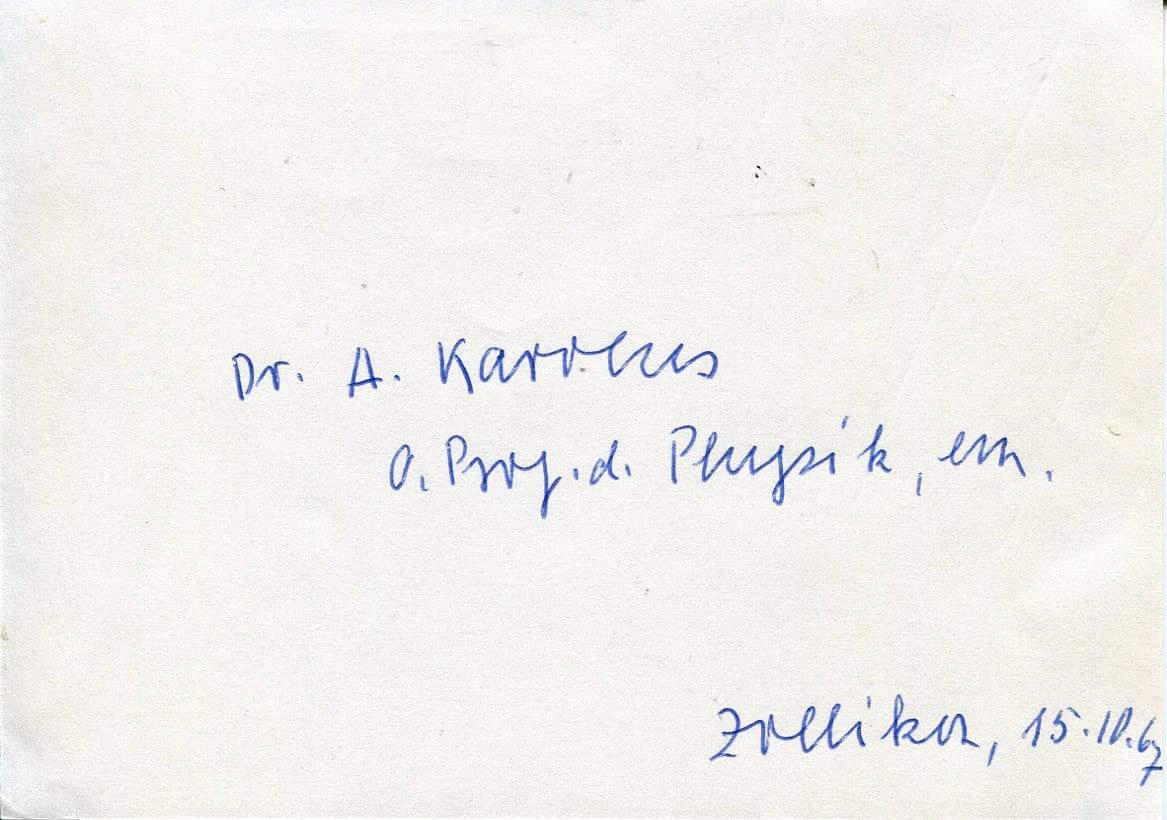 Dr. A. Karolus
o. Prof. d. Physik, em.
Zollikon, 15.10.67